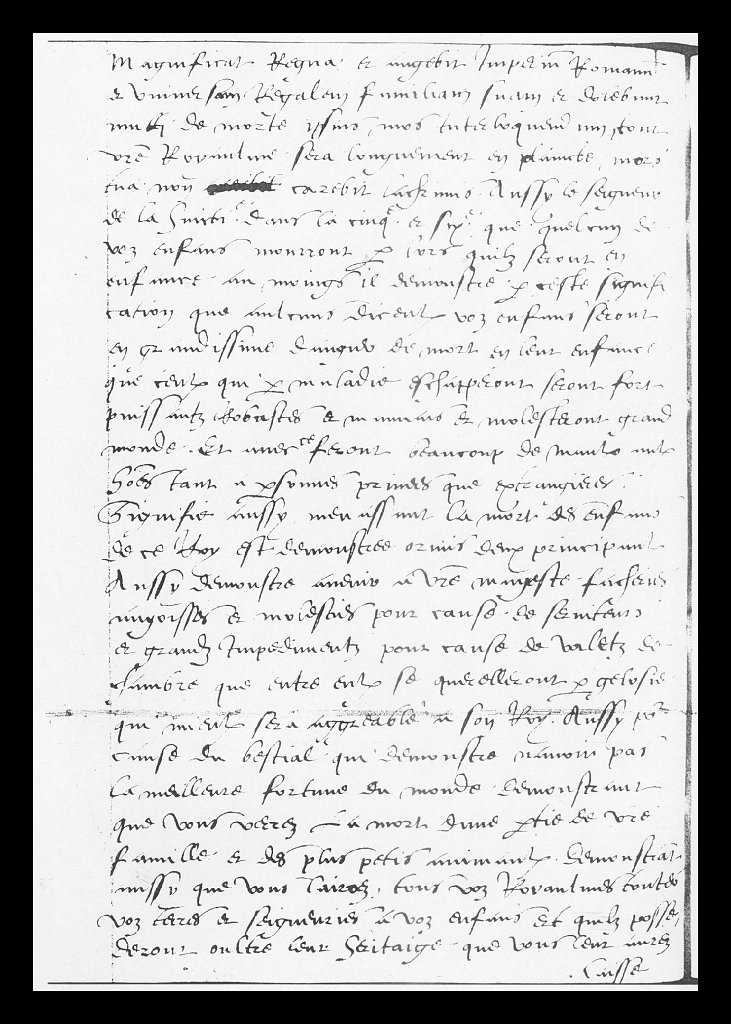 Magnificat Regna et augebit Imperiū Romanū
et universam Regalem familiam suam et dolebunt
multi de morte ipsius, mos interloquend un, tout
vrē Royaulme sera longuement en plaincte, mors
tua non carebit lachrimis. Aussy le seigneur
de la huicti.e dans la cinq.e et six.e que quelcun de
voz enfans mourront p lors quilz seront en
enfance au moings il demonstre p ceste signifi
cation que aulcuns diceulx voz enfans seront
en grandissime danger de mort en leur enfance
que ceulx qui p maladie eschapperont seront fort
puissantz Robustes et et molesteront grand
monde. Et avec ce feront beaucoup de maulx aulx
hoēs tant a psonnes princes que extrangieres.
Signifie aussy menassant la mort des enfans
de ce Roy est demonstree deux principaulx
Aussy demonstre avenir a vrē mageste facheries
angoisses et molesties pour cause de serviteurs
et grandz Impedimentz pour cause de valetz de
chambre que entre eulx se querelleront p gelosie
qui mieulx sera aggreable a son Roy. Aussy por
cause du bestial qui demonstre navoir pas
la meilleure fortune du monde demonstrant
que vous verrez la mort dune ptie de vrē
famille et des plus petis animaulx. demonstrant
aussy que vous lairez tous voz Royaulmes toutes
voz terres et seigneuries a voz enfans Et quilz posse,
deront oultre leur heritaige que vous leur aurez
laisse